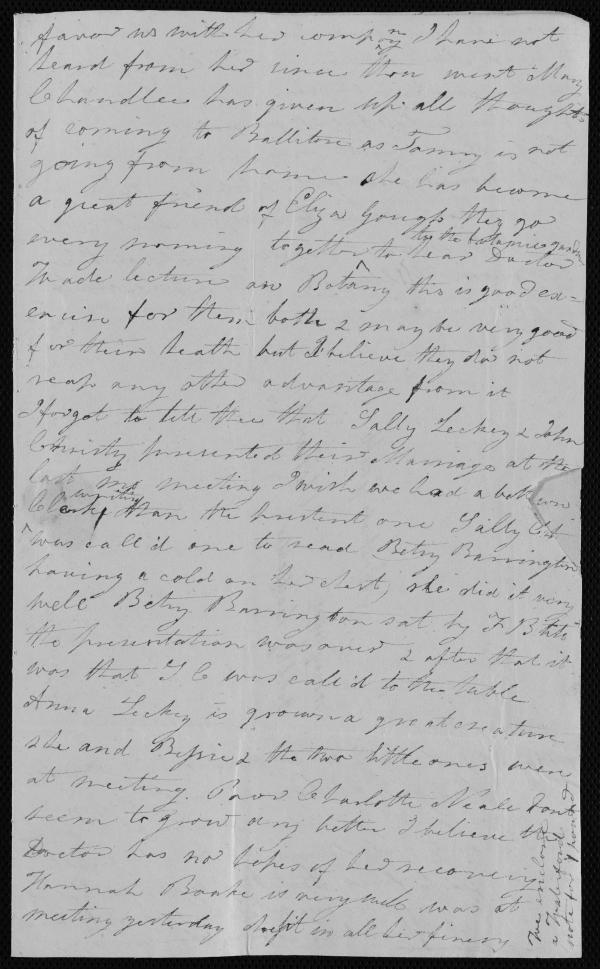 favor us with her compny I have not
heard from her since thou went Mary
Chandlee has given up all thoughts
of coming to Ballitore as Tommy is not
going from home she has become
a great friend of Eliza Goughs they go
every morning together to the botanic garden to hear Doctor
Wade lecture on Botany this is good ex=
ercise for them both & may be very good
for their heath but I believe they do not
reap any other advantage from it
I forgot to tell thee that Sally Leckey & John
Christy presented their Marriage at the
last mo meeting I wish we had a better
Clerk than the present one Sally
was call'd one to read Betsy Barrington
having a cold on her chest, she did it very
well Betsy Barrington sat by
the presentation was over & after that it
was that was call'd to the table
Anna Leckey is grown a great creature
she and Bessie & the two little ones were
at meeting. Poor Charlotte Neale dont
seem to grow any better I believe the
Doctor has no hopes of her recovery
Hannah is very well was at
meeting yesterday drest in all her finery
We enclose
a
note for